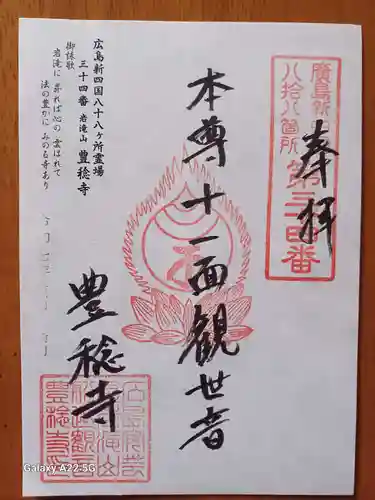 廣島新四国
八拾八箇所
第三四番
奉拝
本尊十一面観世音
豊稔寺
広島新四国八十八ヶ所霊場
三十四番 岩滝山 豊稔寺
御詠歌
岩滝に 昇れば心の 雲はれて
法の豊かに みのる寺あり
Galaxy A22 5G